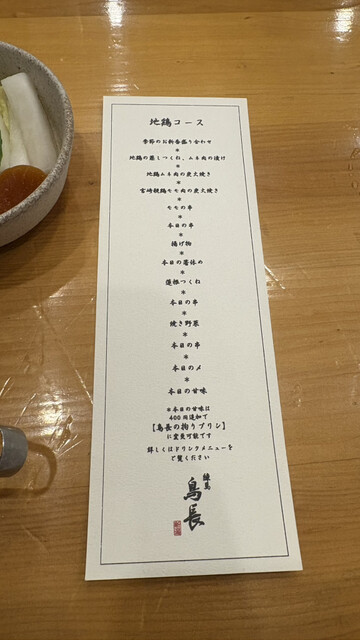 地鶏コース
季節のお新香盛り合わせ
*
地鶏の蒸しつくね、ムネ肉の漬け
*
地鶏ムネ肉の炭火焼き
*
宮崎地鶏モモ肉の炭火焼き
*
モモの串
*
本日の串
*
揚げ物
*
本日の箸休め
*
蓮根つくね
*
本日の串
*
焼き野菜
*
本日の串
*
本日の〆
*
本日の甘味
*本日の甘味は
400円追加で
【鳥長の拘りプリン】
に変更可能です
詳しくはドリンクメニューを
ご覧ください
練馬
鳥長